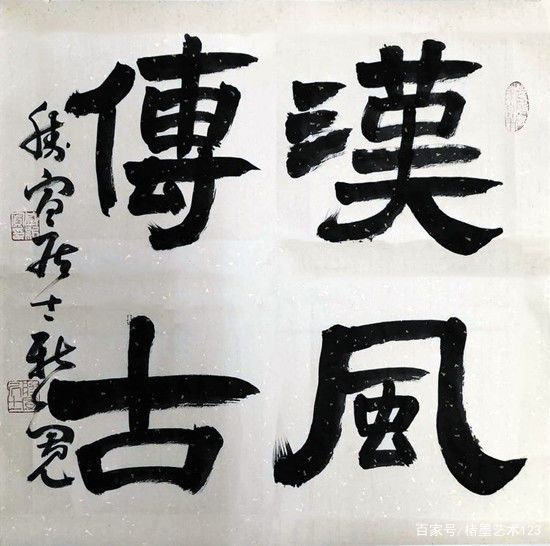 漢風
傳古
居士
百家号/楮墨艺术123